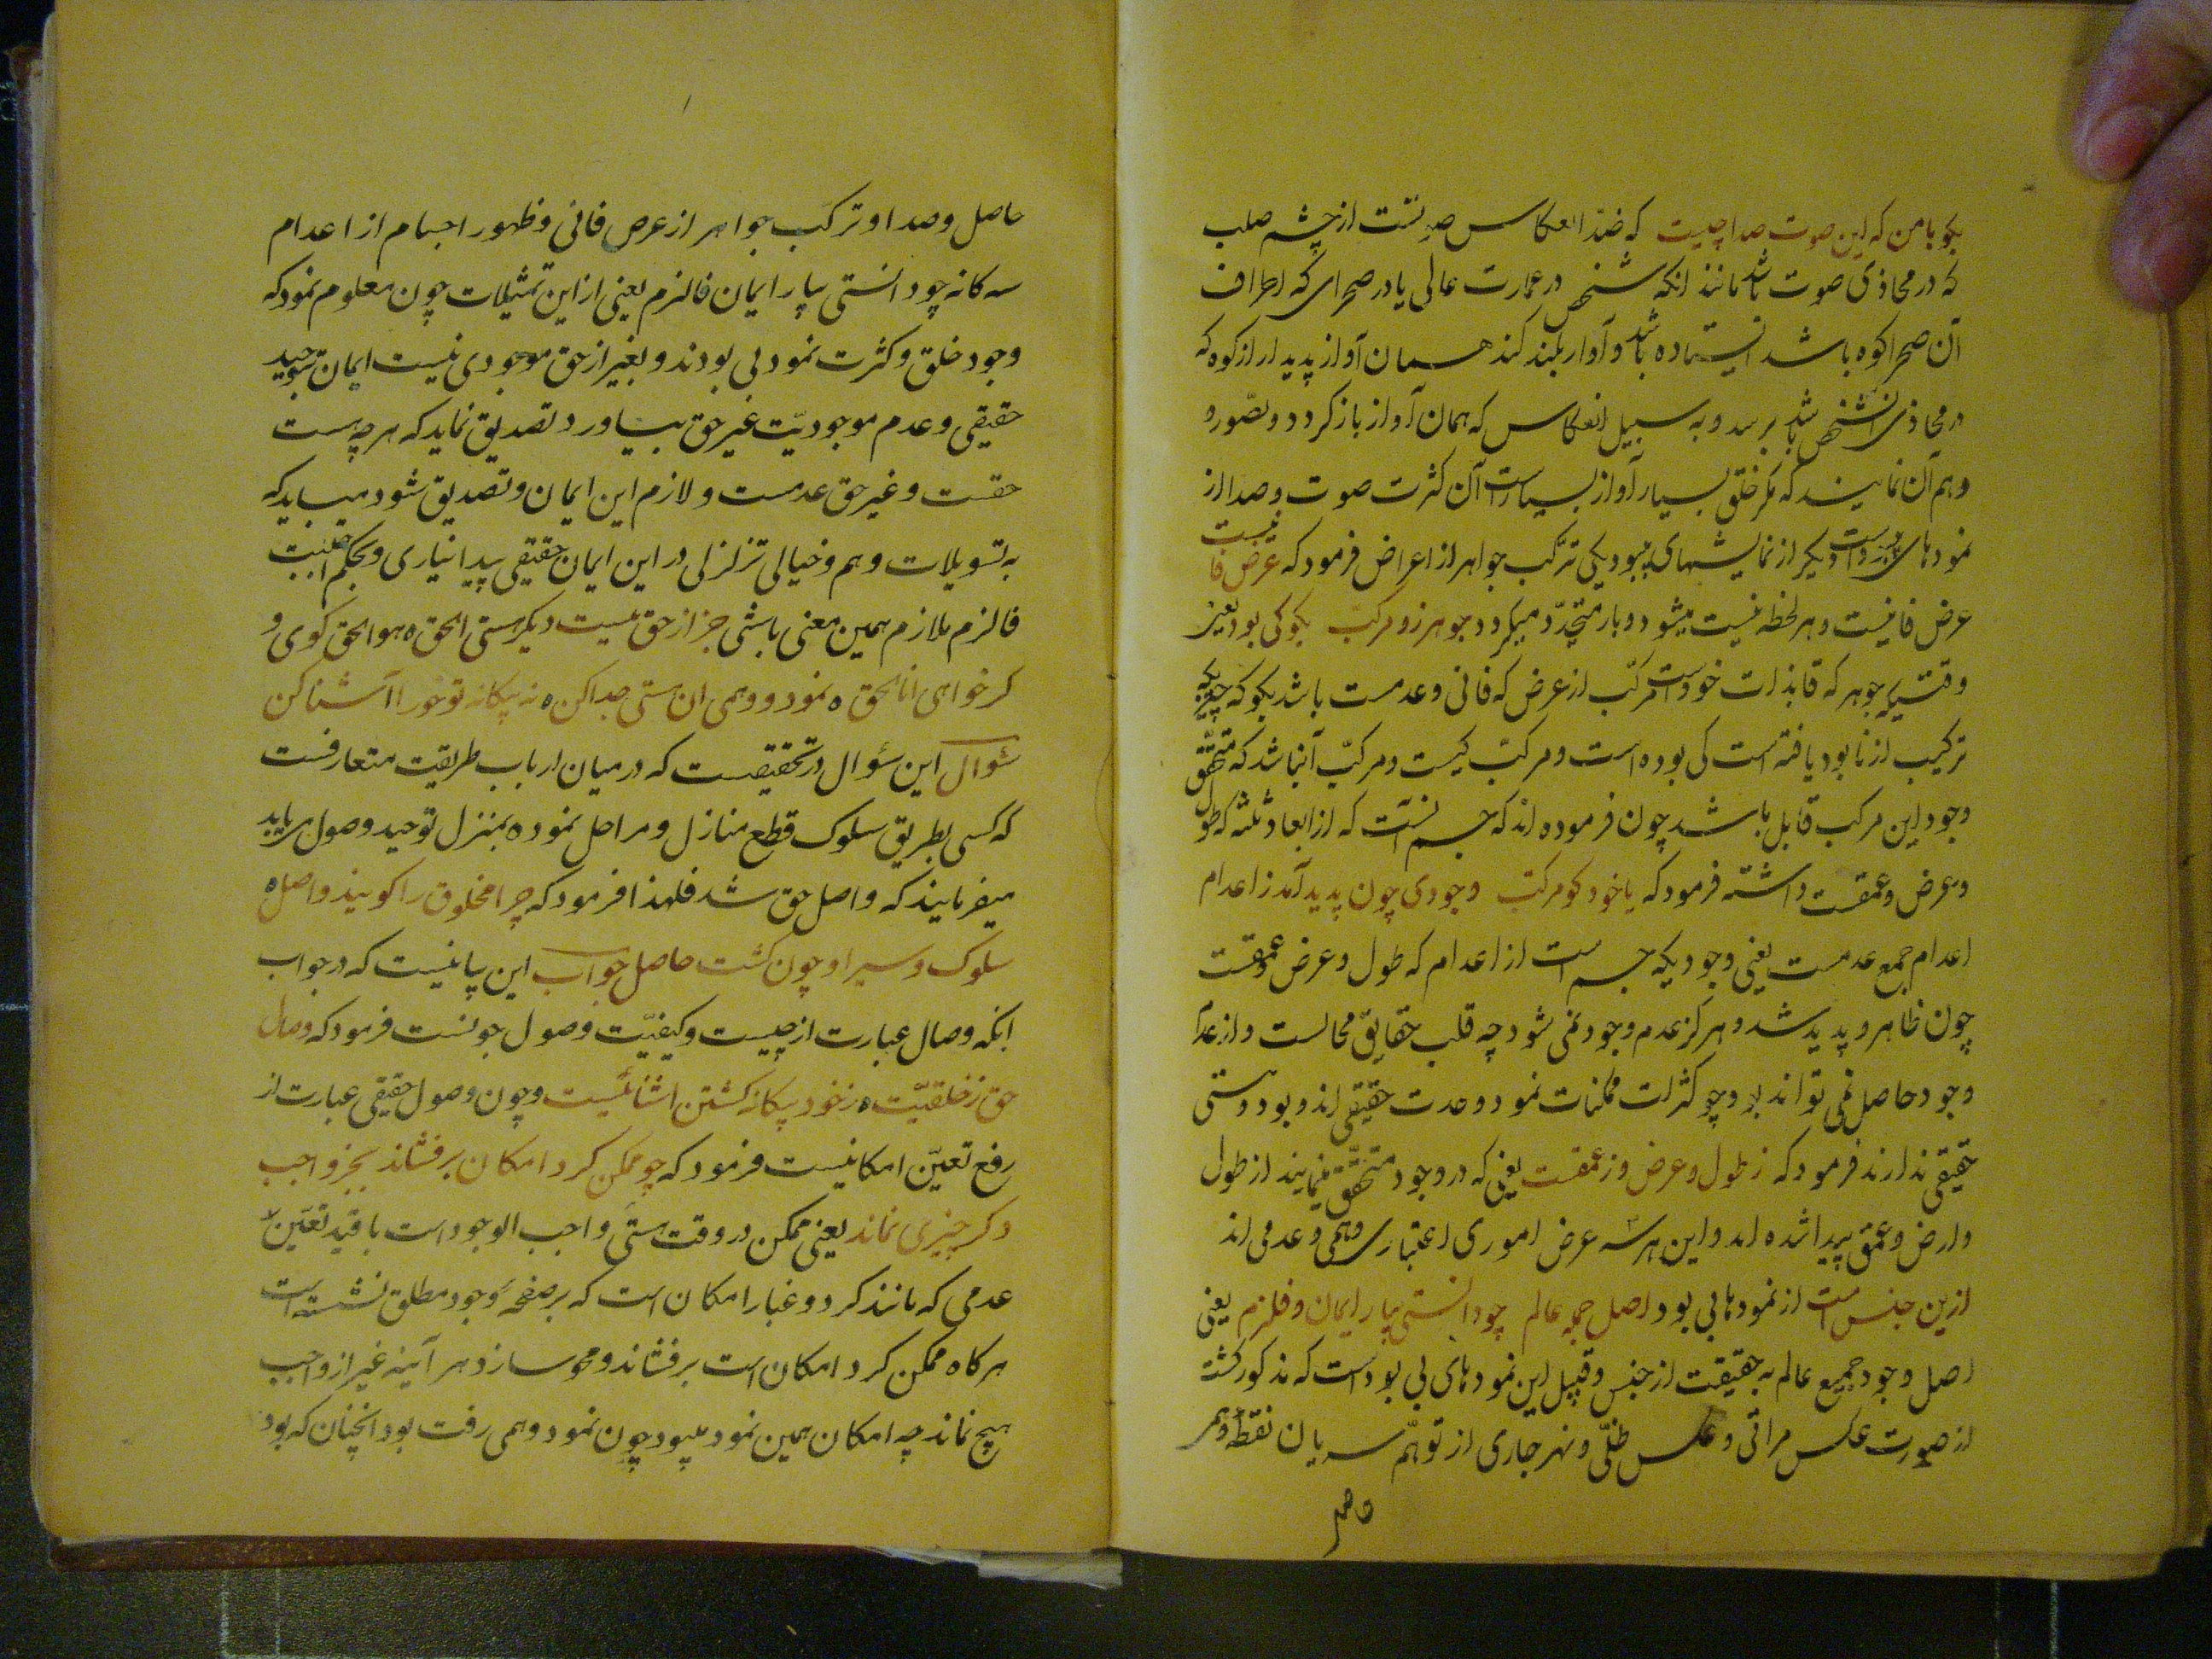 بکو با من که این صوت صدا چیست که صدا انعکاس صوتست از جسم صلب
که در محاذی صوت باشد مانند انکه شخص در عمارت عالی یا در صحرای که اطراف
آن صحرا کوه باشد ایستاده باشد و آواز بلند کند همان آواز پدید ار از کوه که
در محاذی آنشخص باشد برسد و به سبیل انعکاس که همان آواز باز کردد و تصور و
وهم آن نمایند که مکر خلق بسیار آواز بسیار است آن کثرت صوت و صدا از
نمودهای بی بود است دیکر از نمایشهای بی بود یکی ترکب جواهر از اعراض فرمود که عرض فانیست
عرض فانیست و هر لحظه نیست میشود و باز متجدد میکردد جوهر زو مرکب بکو کی بود یعنی
وقتیکه جوهر که قابذات خود است مرکب از عرض که فانی و عدمست باشد بکو که چیزیکه
ترکیب از نابود یافته است کی بوده است و مرکب کیست و مرکب آنباشد که متحقق
وجود این مرکب قابل باشد چون فرموده اند که جسم آنست که از ابعاد ثلثه که طول
و عرض و عمقست داشته فرمود که یا خود کو مرکب وجودی چون پدید آمد ز اعدام
اعدام جمع عدمست یعنی وجود یکه جسم است از اعدام که طول و عرض و عمقست
چون ظاهر و پدید شد و هرکز عدم وجود نمی شود چه قلب حقایق محالست و از عدم
وجود حاصل نمی تواند بود و چو کثرات ممکنات نمود وحدت حقیقی اند و بود و هستی
حقیقی ندارند فرمود که ز طول و عرض و ز عمقست یعنی که در وجود متحقق نمایند از طول
وارض و عمق پیدا شده اند و این هر سه عرض اموری اعتباری وهمی و عدمی اند
ازین جنس است از نمودهای بی بود اصل جمله عالم چو دانستی بیار ایمان و فلزم یعنی
اصل وجود جمیع عالم به حقیقت از جنس و قبیل این نمودهای بی بود است که مذکور کشت
از صورت عکس مراتی و عکس ظلی و نهر جاری از توهم سریان نقطه و مر
حاصل
حاصل و صدا و ترکب جواهر از عرض فانی و ظهور اجسام از اعدام
سه کانه چو دانستی بیار ایمان فالزم یعنی ازاین تمثیلات چون معلوم نمود که
وجود خلق و کثرت نمود بی بودند و بغیر از حق موجودی نیست ایمان توحید
حقیقی و عدم موجودیت غیر حق بیاورد و تصدیق نماید که هر چه هست
حقست و غیر حق عدمست و لازم این ایمان و تصدیق شود میباید که
به تسویلات وهم و خیالی تزلزلی در این ایمان حقیقی پیدا نیاری و بحکم اصبت
فالزم ملازم همین معنی باشی جز از حق نیست دیکر هستی الحق ه هو الحق کوی و
کر خواهی انا الحق ه نمود و وهمی ان هستی جدا کن ه نه بیکانه تو خود را آشنا کن
سٔوال این سٔوال در تحقیقست که در میان ارباب طریقت متعارفست
که کسی بطریق سلوک قطع منازل و مراحل نموده بمنزل توحید وصول می یابد
میفرمایند که واصل حق شد فلهذا فرمود که چرا مخلوق را کویند واصل ه
سلوک و سیر او چون کشت حاصل جواب این بیانیست که در جواب
انکه وصال عبارت از چیست و کیفیت وصول چونست فرمود که وصال
حق ز خلقیت ه ز خود بیکانه کشتن اشنائیست و چون وصول حقیقی عبارت از
رفع تعین امکانیست فرمود که چو ممکن کرد امکان برفشاند بجز واجب
دکر چیزی نماند یعنی ممکن در وقت هستی واجب الوجود است باقید تعین
عدمی که مانند کرد و غبار امکان است که بر صفحه وجود مطلق نشسته است
هرکاه ممکن کرد امکان است برفشاند و محو سازد هر آینه غیر از واجب
هیچ نماند چه امکان همین نمود میبود چون نمود وهمی رفت بود انچنان که بود